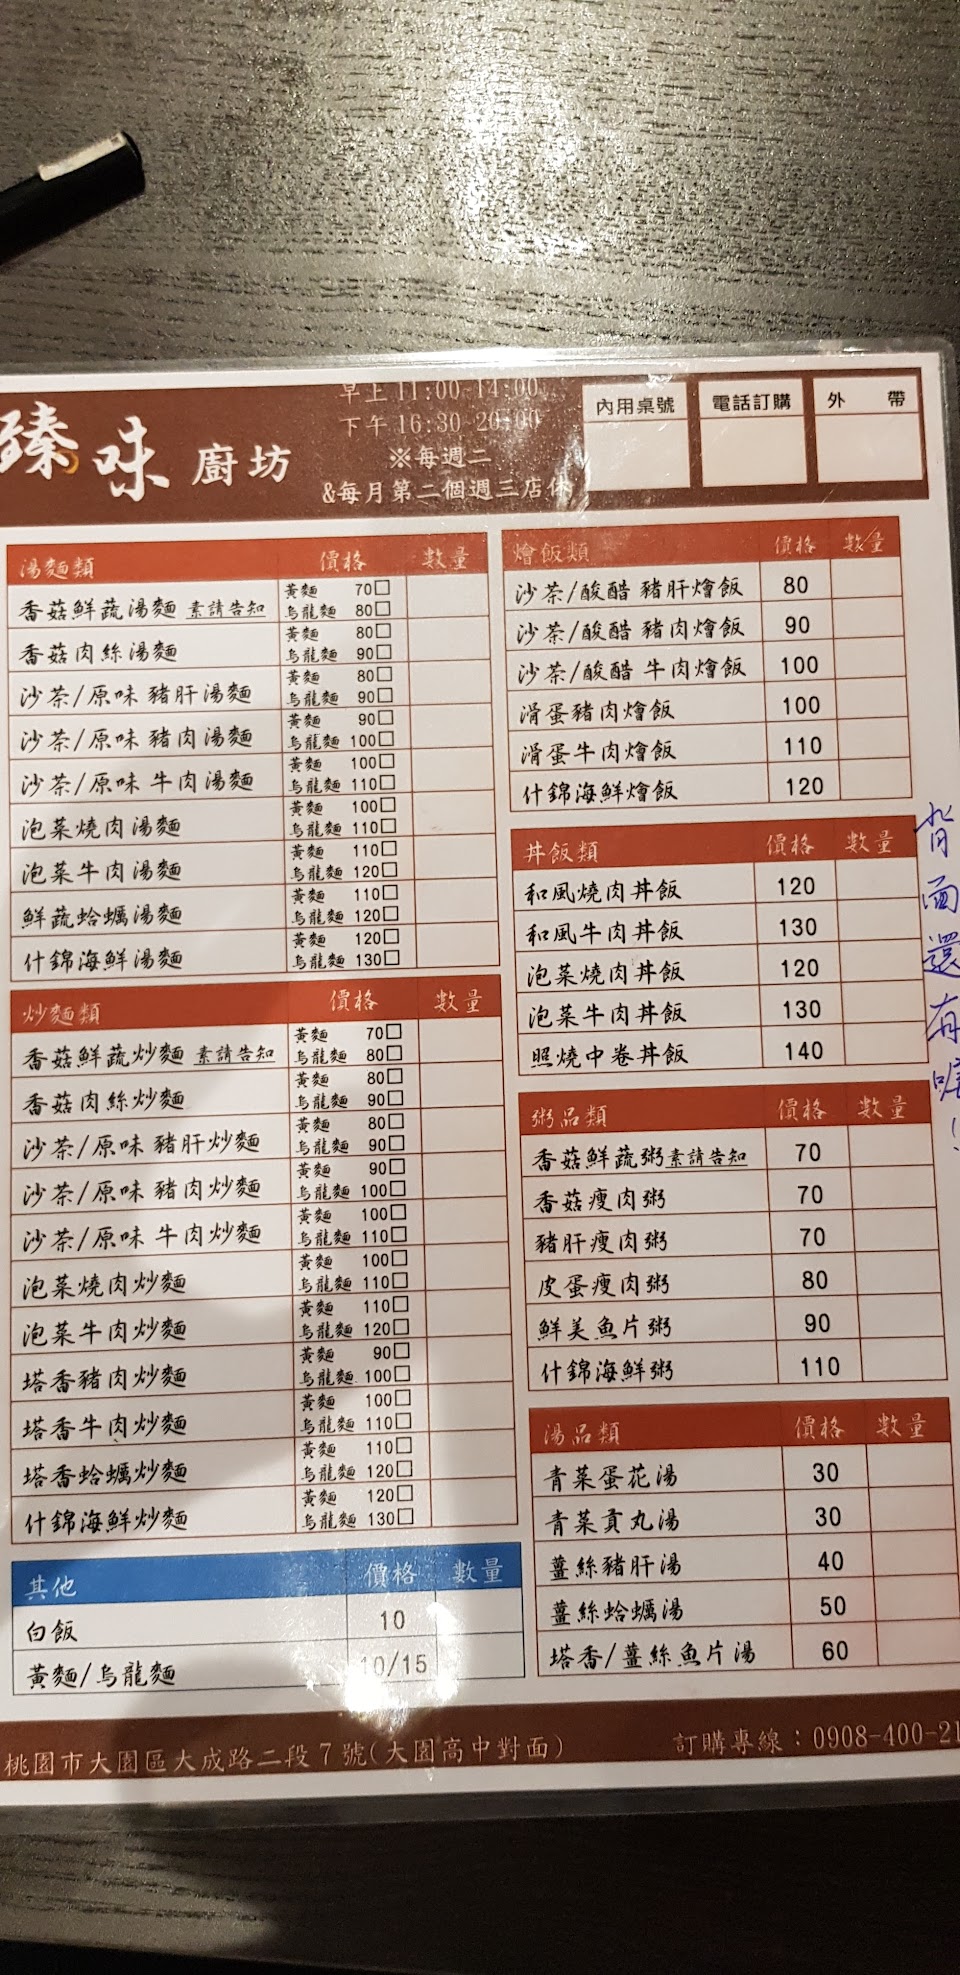 臻味廚坊
早上11:00-14:00
下午16:30-20:00
※每週二
&每月第二個週三店休
內用桌號
電話訂購
外 帶
湯麵類 價格 數量
香菇鮮蔬湯麵 素請告知 黃麵 70□
烏龍麵 80□
香菇肉絲湯麵 黃麵 80□
烏龍麵 90□
沙茶/原味 豬肝湯麵 黃麵 80□
烏龍麵 90□
沙茶/原味 豬肉湯麵 黃麵 90□
烏龍麵 100□
沙茶/原味 牛肉湯麵 黃麵 100□
烏龍麵 110□
泡菜燒肉湯麵 黃麵 100□
烏龍麵 110□
泡菜牛肉湯麵 黃麵 110□
烏龍麵 120□
鮮蔬蛤蠣湯麵 黃麵 110□
烏龍麵 120□
什錦海鮮湯麵 黃麵 120□
烏龍麵 130□
炒麵類 價格 數量
香菇鮮蔬炒麵 素請告知 黃麵 70□
烏龍麵 80□
香菇肉絲炒麵 黃麵 80□
烏龍麵 90□
沙茶/原味 豬肝炒麵 黃麵 80□
烏龍麵 90□
沙茶/原味 豬肉炒麵 黃麵 90□
烏龍麵 100□
沙茶/原味 牛肉炒麵 黃麵 100□
烏龍麵 110□
泡菜燒肉炒麵 黃麵 100□
烏龍麵 110□
泡菜牛肉炒麵 黃麵 110□
烏龍麵 120□
塔香豬肉炒麵 黃麵 90□
烏龍麵 100□
塔香牛肉炒麵 黃麵 100□
烏龍麵 110□
塔香蛤蠣炒麵 黃麵 110□
烏龍麵 120□
什錦海鮮炒麵 黃麵 120□
烏龍麵 130□
其他 價格 數量
白飯 10
黃麵/烏龍麵 10/15
燴飯類 價格 數量
沙茶/酸醋 豬肝燴飯 80
沙茶/酸醋 豬肉燴飯 90
沙茶/酸醋 牛肉燴飯 100
滑蛋豬肉燴飯 100
滑蛋牛肉燴飯 110
什錦海鮮燴飯 120
丼飯類 價格 數量
和風燒肉丼飯 120
和風牛肉丼飯 130
泡菜燒肉丼飯 120
泡菜牛肉丼飯 130
照燒中卷丼飯 140
粥品類 價格 數量
香菇鮮蔬粥素請告知 70
香菇瘦肉粥 70
豬肝瘦肉粥 70
皮蛋瘦肉粥 80
鮮美魚片粥 90
什錦海鮮粥 110
湯品類 價格 數量
青菜蛋花湯 30
青菜貢丸湯 30
薑絲豬肝湯 40
薑絲蛤蠣湯 50
塔香/薑絲魚片湯 60
背面還有喔!
桃園市大園區大成路二段7號(大園高中對面)
訂購專線：0908-400-21